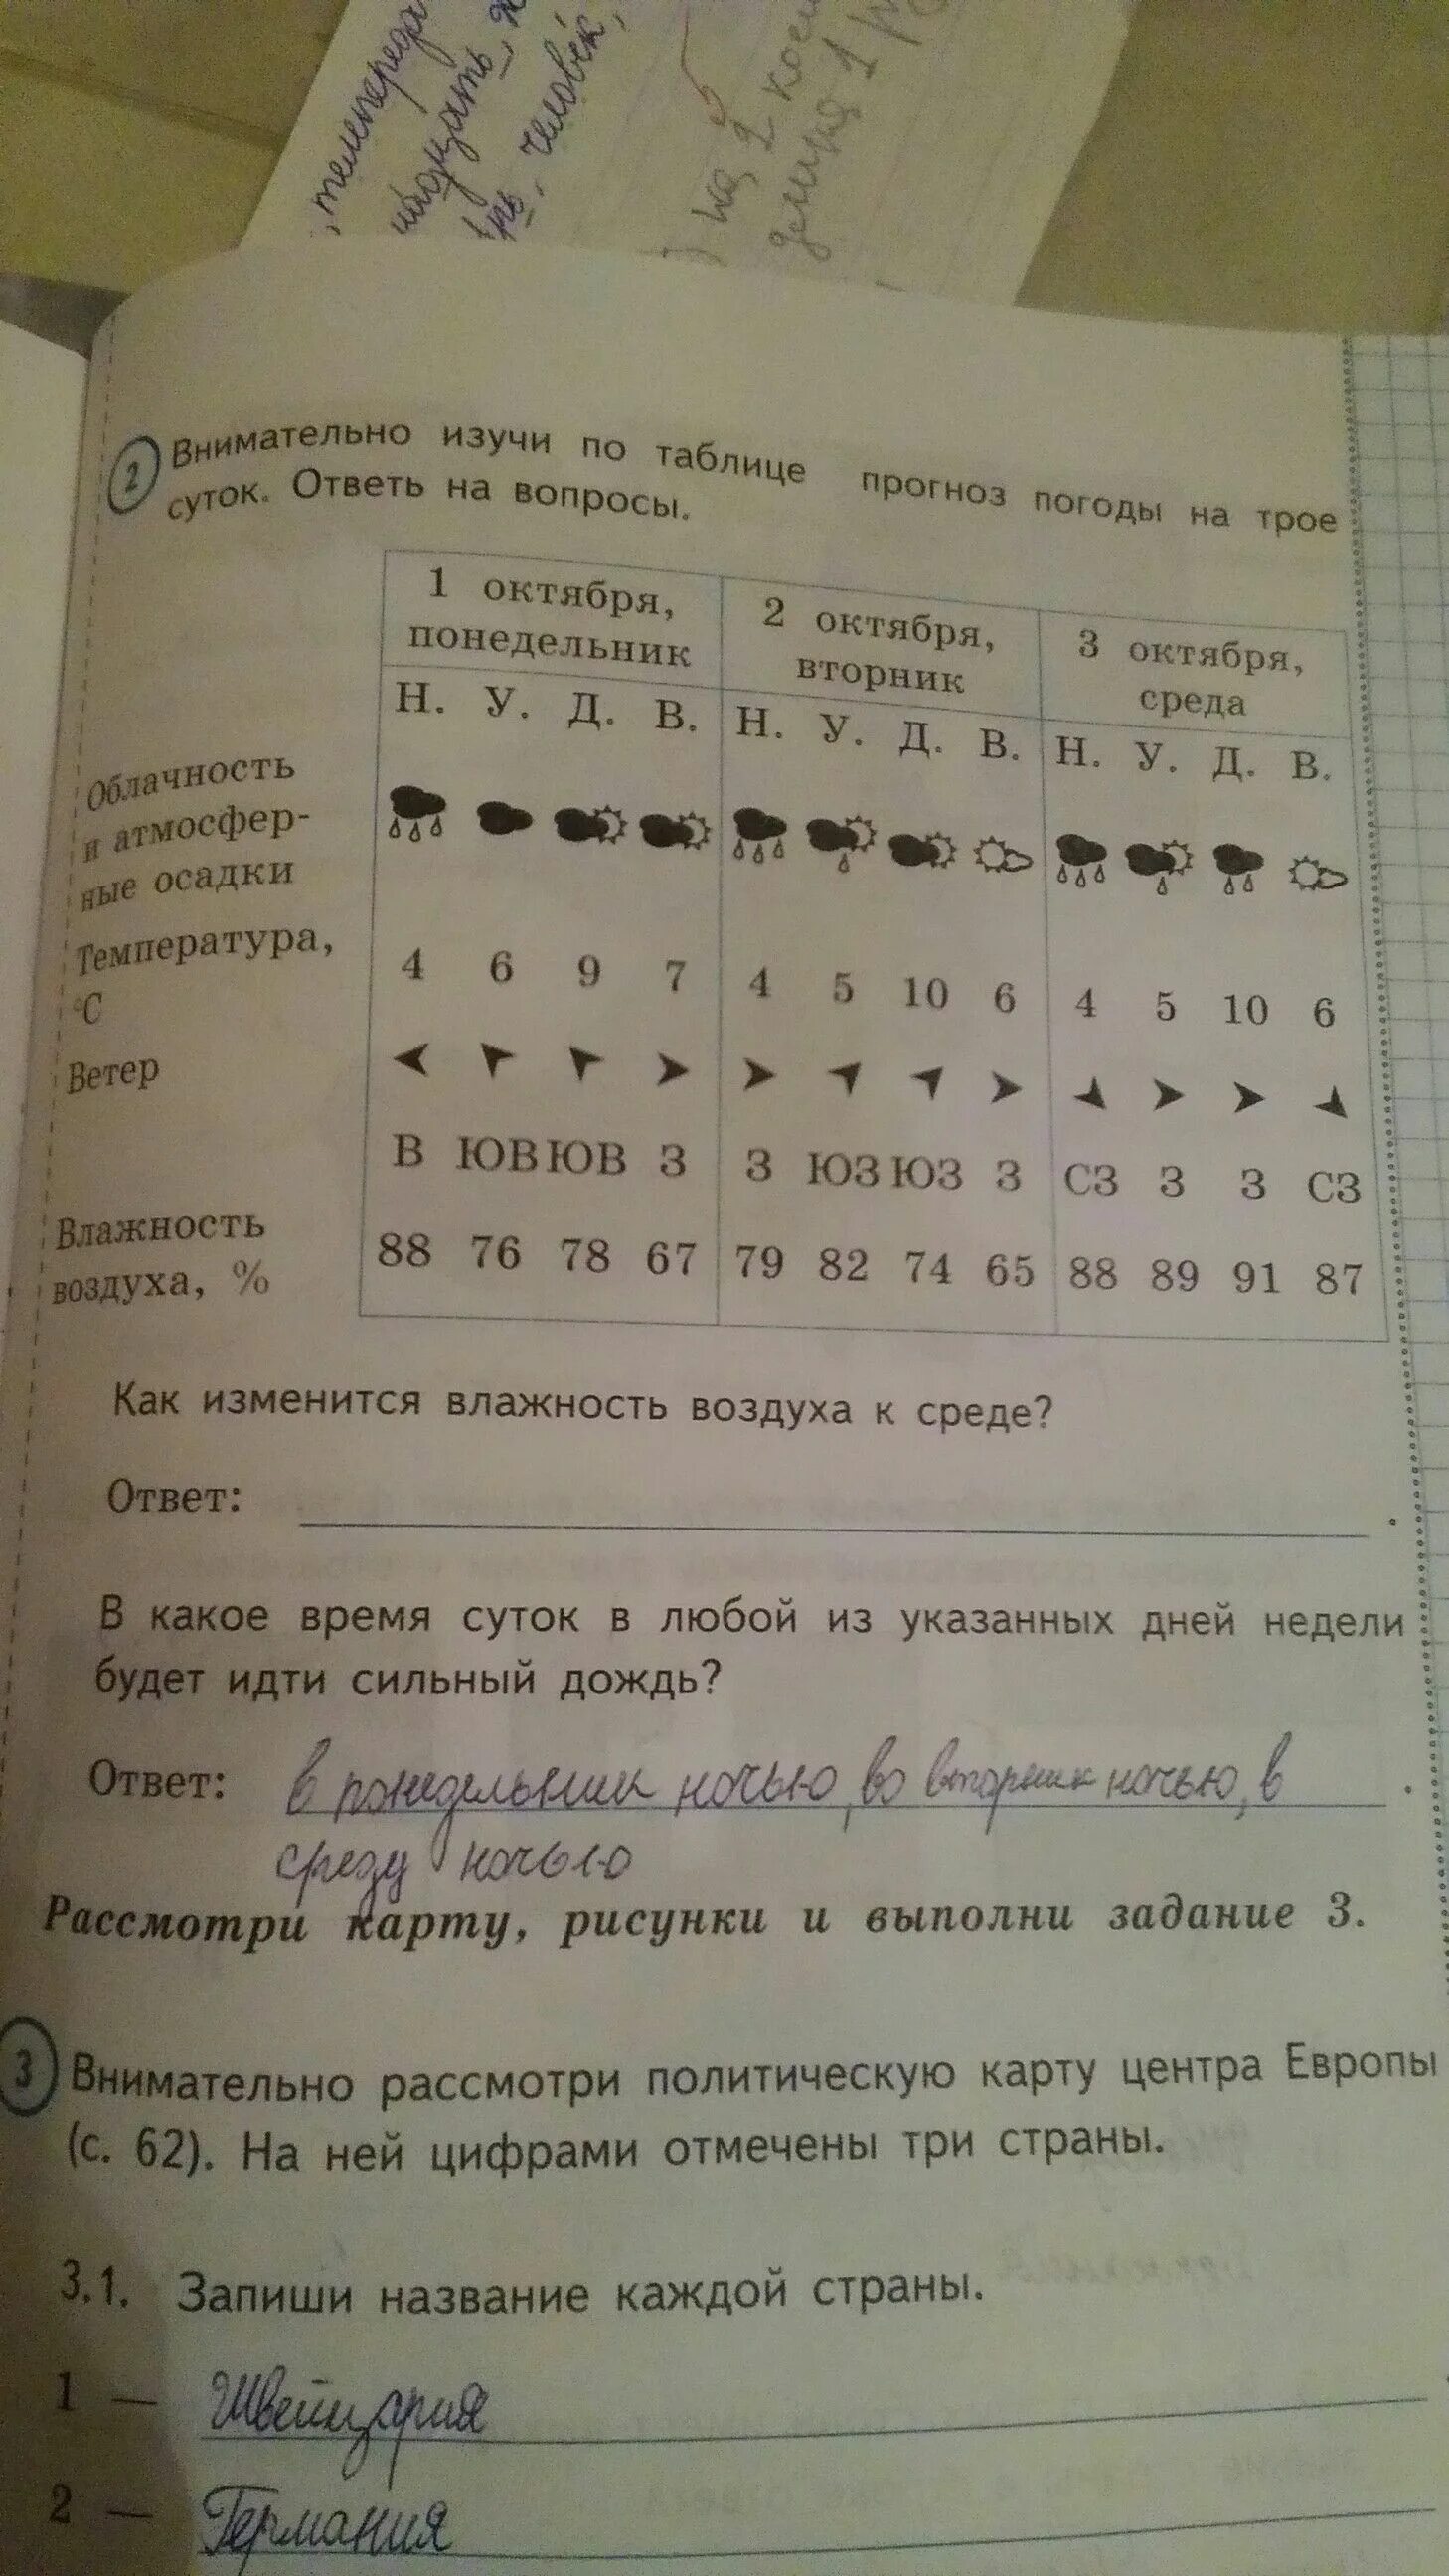 , телепереда
надцать, ж
ть, человек,
на 2 кост
длина 1 р
2 Внимательно изучи по таблице прогноз погоды на трое
суток. Ответь на вопросы.
1 октября, понедельник 2 октября, вторник 3 октября, среда
Н. У. Д. В. Н. У. Д. В. Н. У. Д. В.
Облачность
и атмосфер-
ные осадки
Температура, °С 4 6 9 7 4 5 10 6 4 5 10 6
Ветер
В ЮВ ЮВ З З ЮЗ ЮЗ З СЗ З З СЗ
Влажность воздуха, % 88 76 78 67 79 82 74 65 88 89 91 87
Как изменится влажность воздуха к среде?
Ответ: .
В какое время суток в любой из указанных дней недели
будет идти сильный дождь?
Ответ: в понедельник ночью, во вторник ночью, в .
среду ночью
Рассмотри карту, рисунки и выполни задание 3.
3 Внимательно рассмотри политическую карту центра Европы
(с. 62). На ней цифрами отмечены три страны.
3.1. Запиши название каждой страны.
1 — Швейцария
2 — Германия